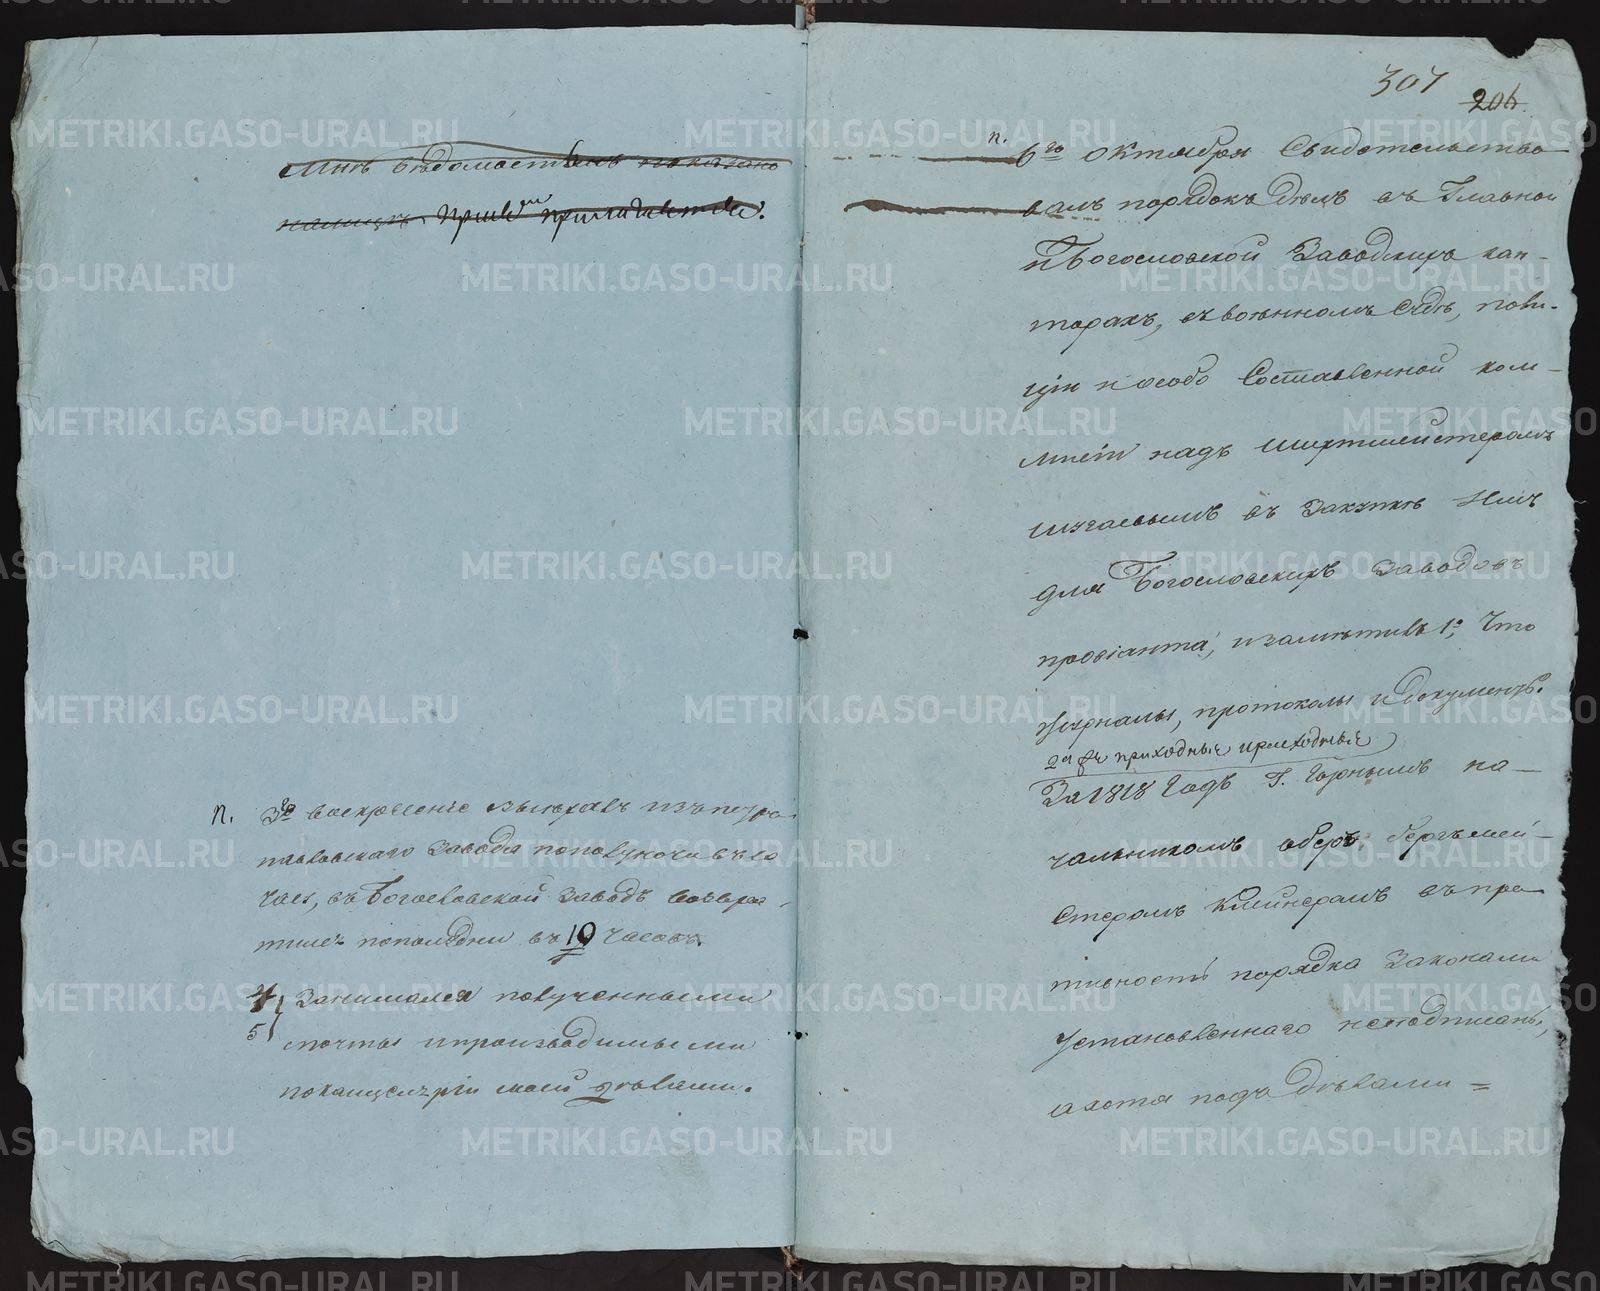 мнѣ вѣдомостямъ показано
при семъ прилагается.
п. 3го воскресение выѣхавъ изъ петро
павловскаго завода пополуночи въ 10
часу, въ Богословской заводъ возвра-
тился пополудни въ 10 часовъ.
4} Занимался полученными
5} почты и производимыми
по канцеляріи моей дѣлами.
307
206
п. 6го октября Свидетельство
валъ порядокъ дѣлъ въ Главной
и Богословской Заводскихъ кан-
торахъ, въ военномъ Судѣ, поли-
ціи и особо Составленной ком-
мисіи надъ шихтмейстеромъ
въ закупке Имъ
для Богословскихъ заводовъ
провіанта, и заметивъ 1е, Что
журналы, протоколы и документы
приходныя и расходныя
За 1818 Годъ Г. Горнымъ на-
чальникомъ оберъ бергъмей-
стеромъ Клейнеромъ въ про
тивность порядка Законами
установленнаго неподписаны,
а хотя подъ дѣлами =
METRIKI.GASO-URAL.RU